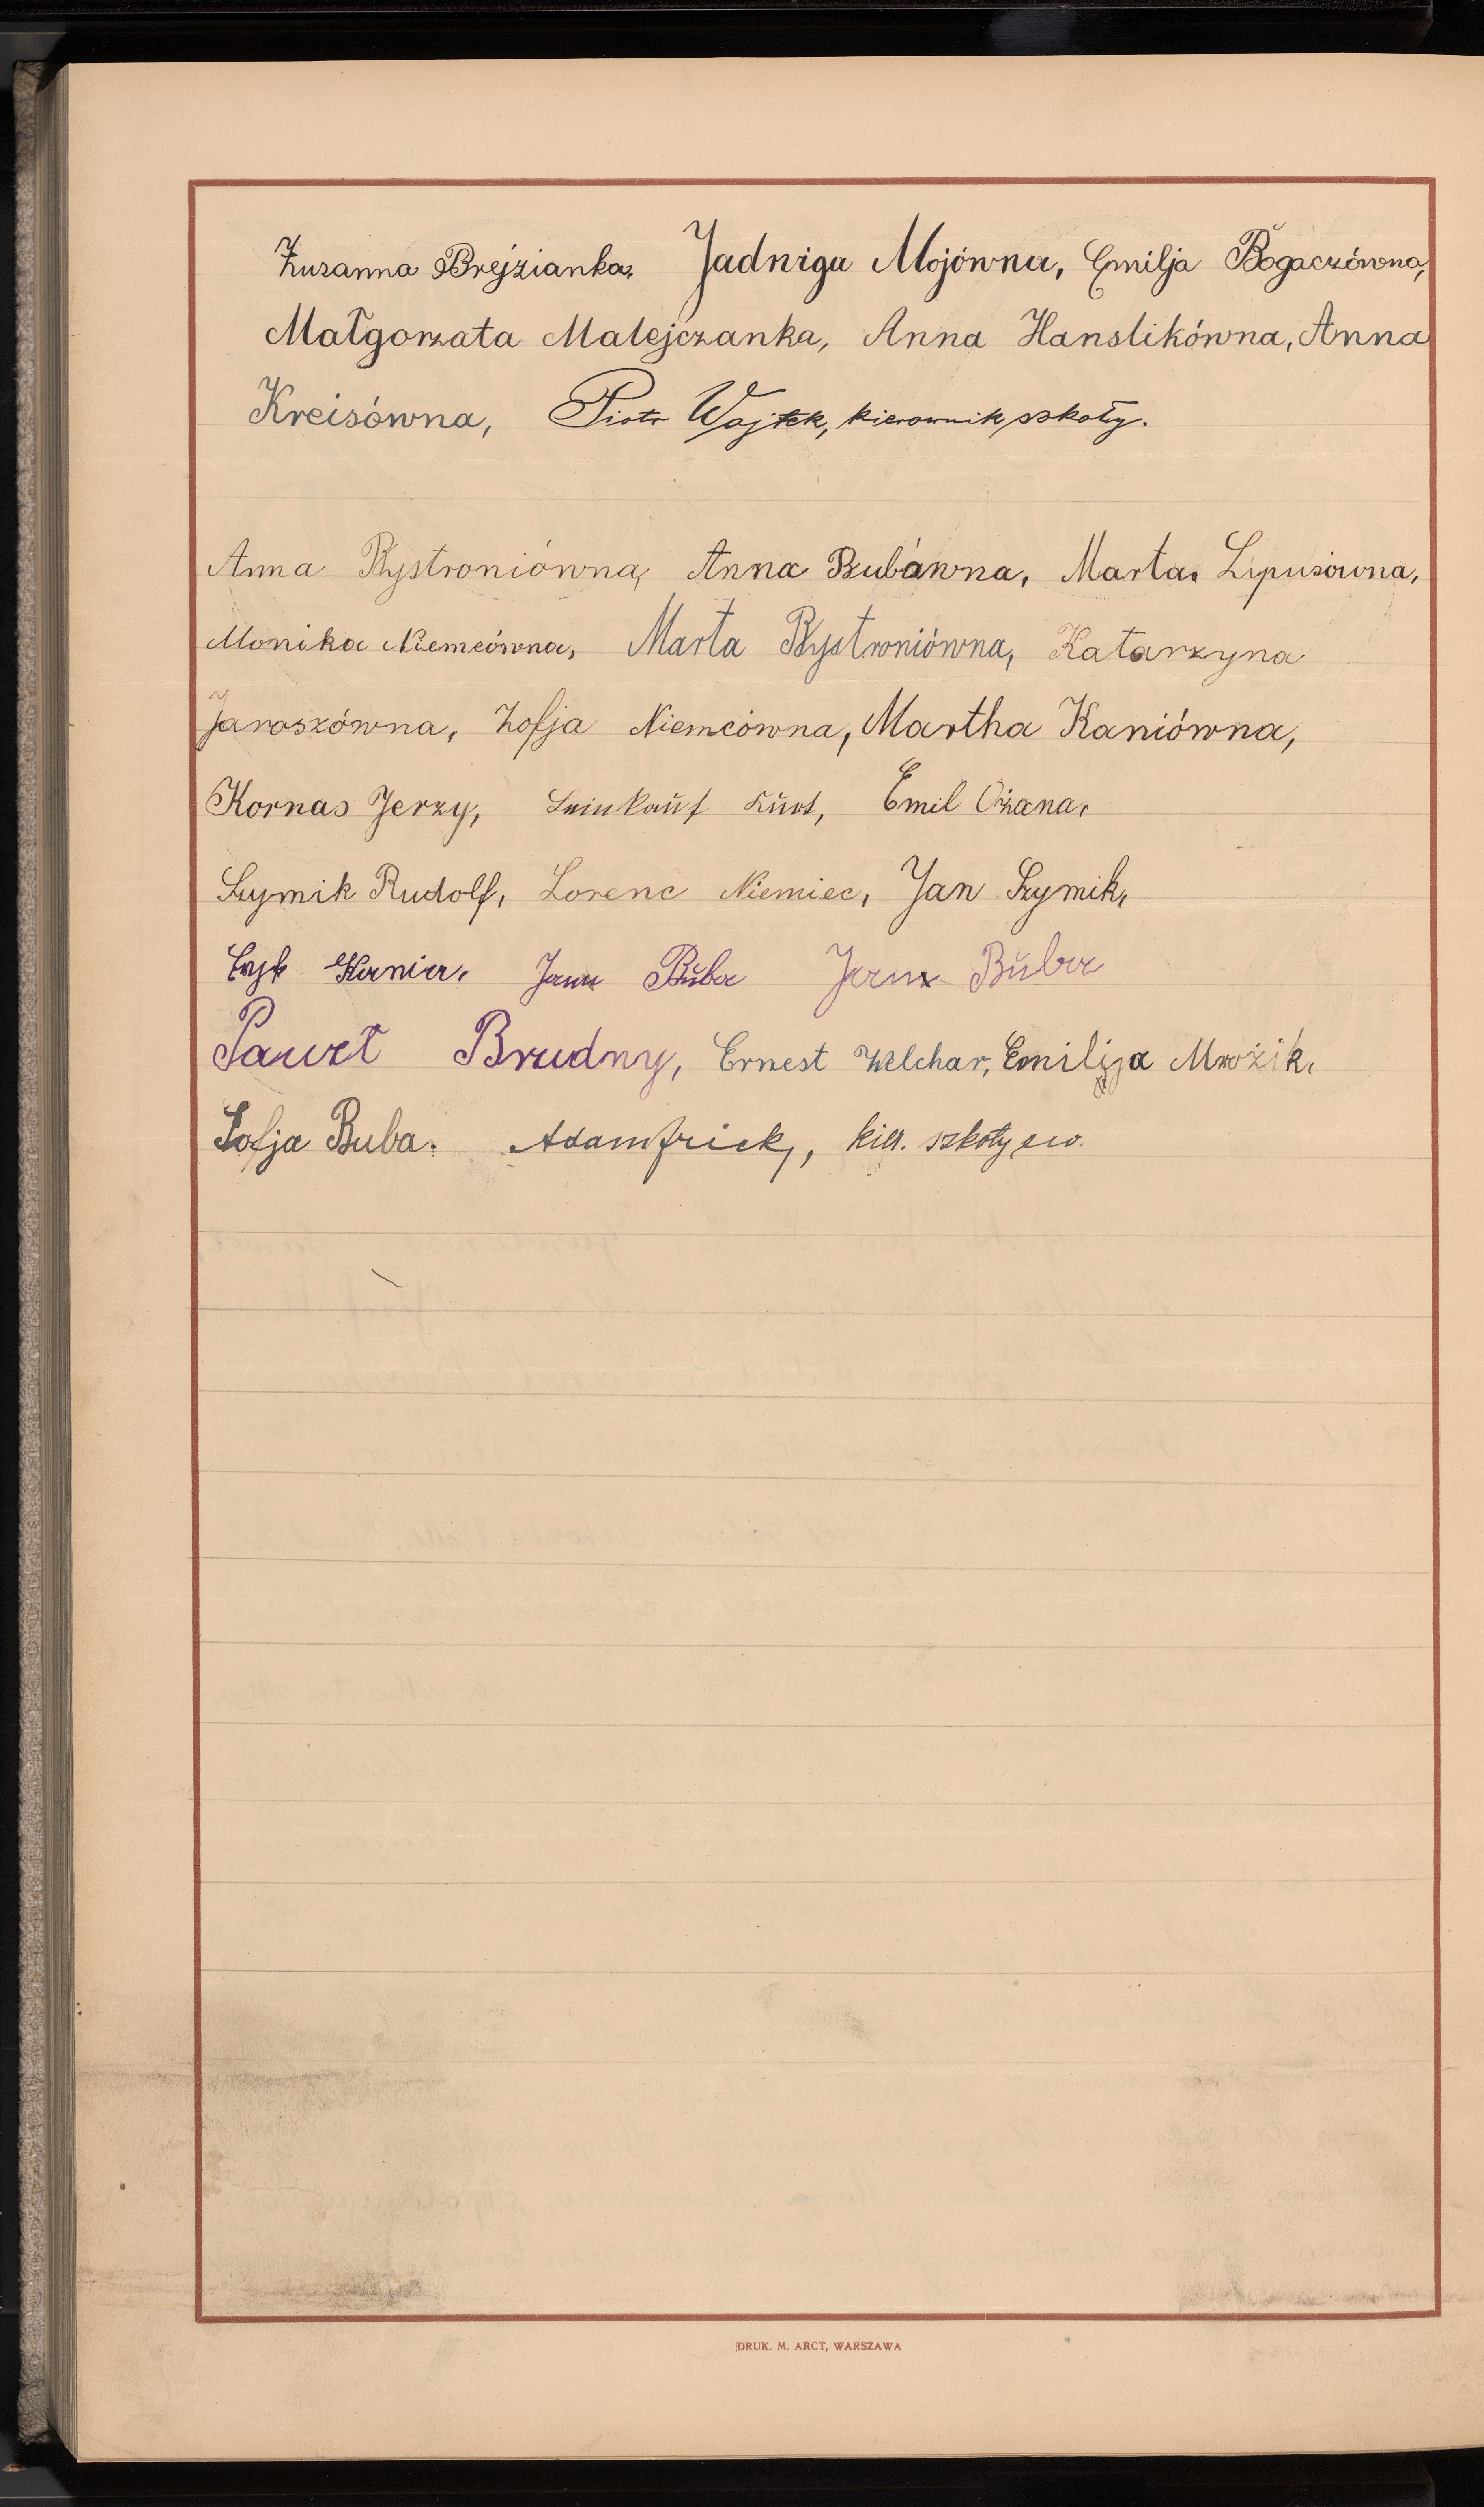 Zuzanna Brejzianka, Jadwiga Mojówna, Emilja Bogaczówna,
Małgorzata Matejczanka, Anna Hanslikówna, Anna
Kreisówna, Piotr Wojtek, kierownik szkoły.
Anna Bystroniówna, Anna Bubówna, Marta Lipusówna,
Monika Niemcówna, Marta Bystroniówna, Katarzyna
Jaroszówna, Zofja Niemcówna, Martha Kaniówna,
Kornas Jerzy, Leinkauf Kurt, Emil Ożana,
Szymik Rudolf, Lorenc Niemiec, Jan Szymik,
Kania, Jan Buba Jan Buba
Paweł Brudny, Ernest Welchar, Emilija Mrożik,
Zofja Buba. Adam Frick, kier. szkoły ew.
DRUK. M. ARCT, WARSZAWA